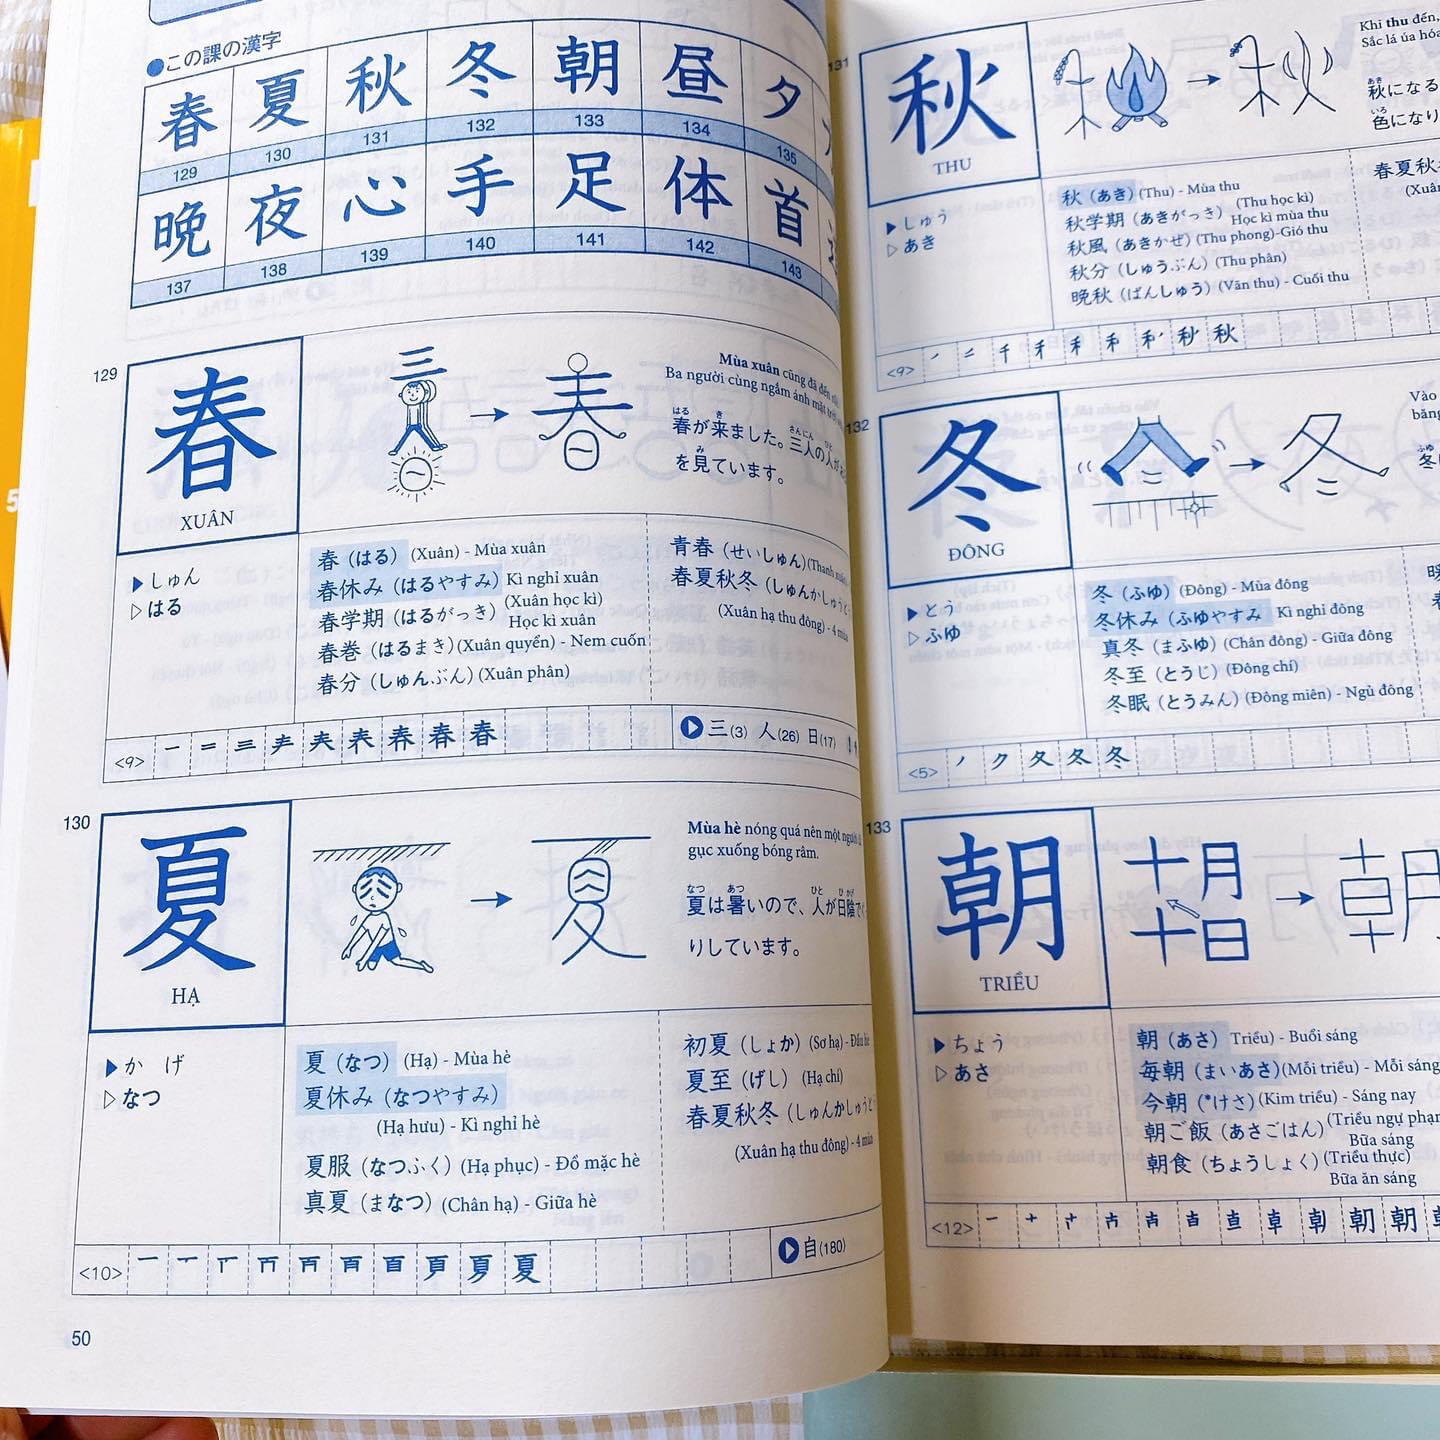 ●この課の漢字
春 夏 秋 冬 朝 昼 夕
129 130 131 132 133 134 135
晩 夜 心 手 足 体 首
137 138 139 140 141 142 143
129
春
XUÂN
三
春
Mùa xuân cũng đã đến
Ba người cùng ngắm ánh mặt
はる き さんにん ひと
春が来ました。三人の人が
み
を見ています。
▶しゅん
▷はる
春（はる） (Xuân) - Mùa xuân
春休み（はるやすみ） Kì nghỉ xuân
春学期（はるがっき） (Xuân học kì) Học kì xuân
春巻（はるまき）(Xuân quyển) - Nem cuốn
春分（しゅんぶん）(Xuân phân)
青春（せいしゅん）(Thanh
春夏秋冬（しゅんかしゅうと
(Xuân hạ thu đông) - 4
<9> 一 二 三 春
三(3) 人(26) 日(17)
130
夏
HẠ
Mùa hè nóng quá nên một người
gục xuống bóng râm.
なつ あつ ひと ひかげ
夏は暑いので、人が日陰で
りしています。
▶か げ
▷なつ
夏（なつ） (Hạ) - Mùa hè
夏休み（なつやすみ）
(Hạ hưu) - Kì nghỉ hè
夏服（なつふく）(Hạ phục) - Đồ mặc hè
真夏（まなつ） (Chân hạ) - Giữa hè
初夏（しょか） (Sơ hạ) - Đầu hè
夏至（げし） (Hạ chí)
春夏秋冬（しゅんかしゅうと
(Xuân hạ thu đông) - 4 mùa
<10> 夏
自(180)
50
131
秋
THU
Khi thu đến,
Sắc lá úa hóa
あき
秋になる
いろ
色になり
▶しゅう
▷あき
秋（あき）(Thu) - Mùa thu
秋学期（あきがっき） (Thu học kì) Học kì mùa thu
秋風（あきかぜ）(Thu phong)-Gió thu
秋分（しゅうぶん）(Thu phân)
晩秋（ばんしゅう）(Vãn thu) - Cuối thu
春夏秋
(Xuân
<9> 千 禾 秋
132
冬
ĐÔNG
Vào
băng
ふゆ
冬
▶とう
▷ふゆ
冬（ふゆ） (Đông) - Mùa đông
冬休み（ふゆやすみ Kì nghỉ đông
真冬（まふゆ）(Chân đông) - Giữa đông
冬至（とうじ）(Đông chí)
冬眠（とうみん）(Đông miên) - Ngủ đông
<5> ノ ク 夂 冬 冬
133
朝
TRIỀU
十月
十日
▶ちょう
▷あさ
朝（あさ） Triều) - Buổi sáng
毎朝（まいあさ）(Mỗi triều) - Mỗi sáng
今朝（*けさ）(Kim triều) - Sáng nay
朝ご飯（あさごはん）(Triều ngự phạn Bữa sáng
朝食（ちょうしょく）(Triều thực) Bữa ăn sáng
<12> 一 十 朝